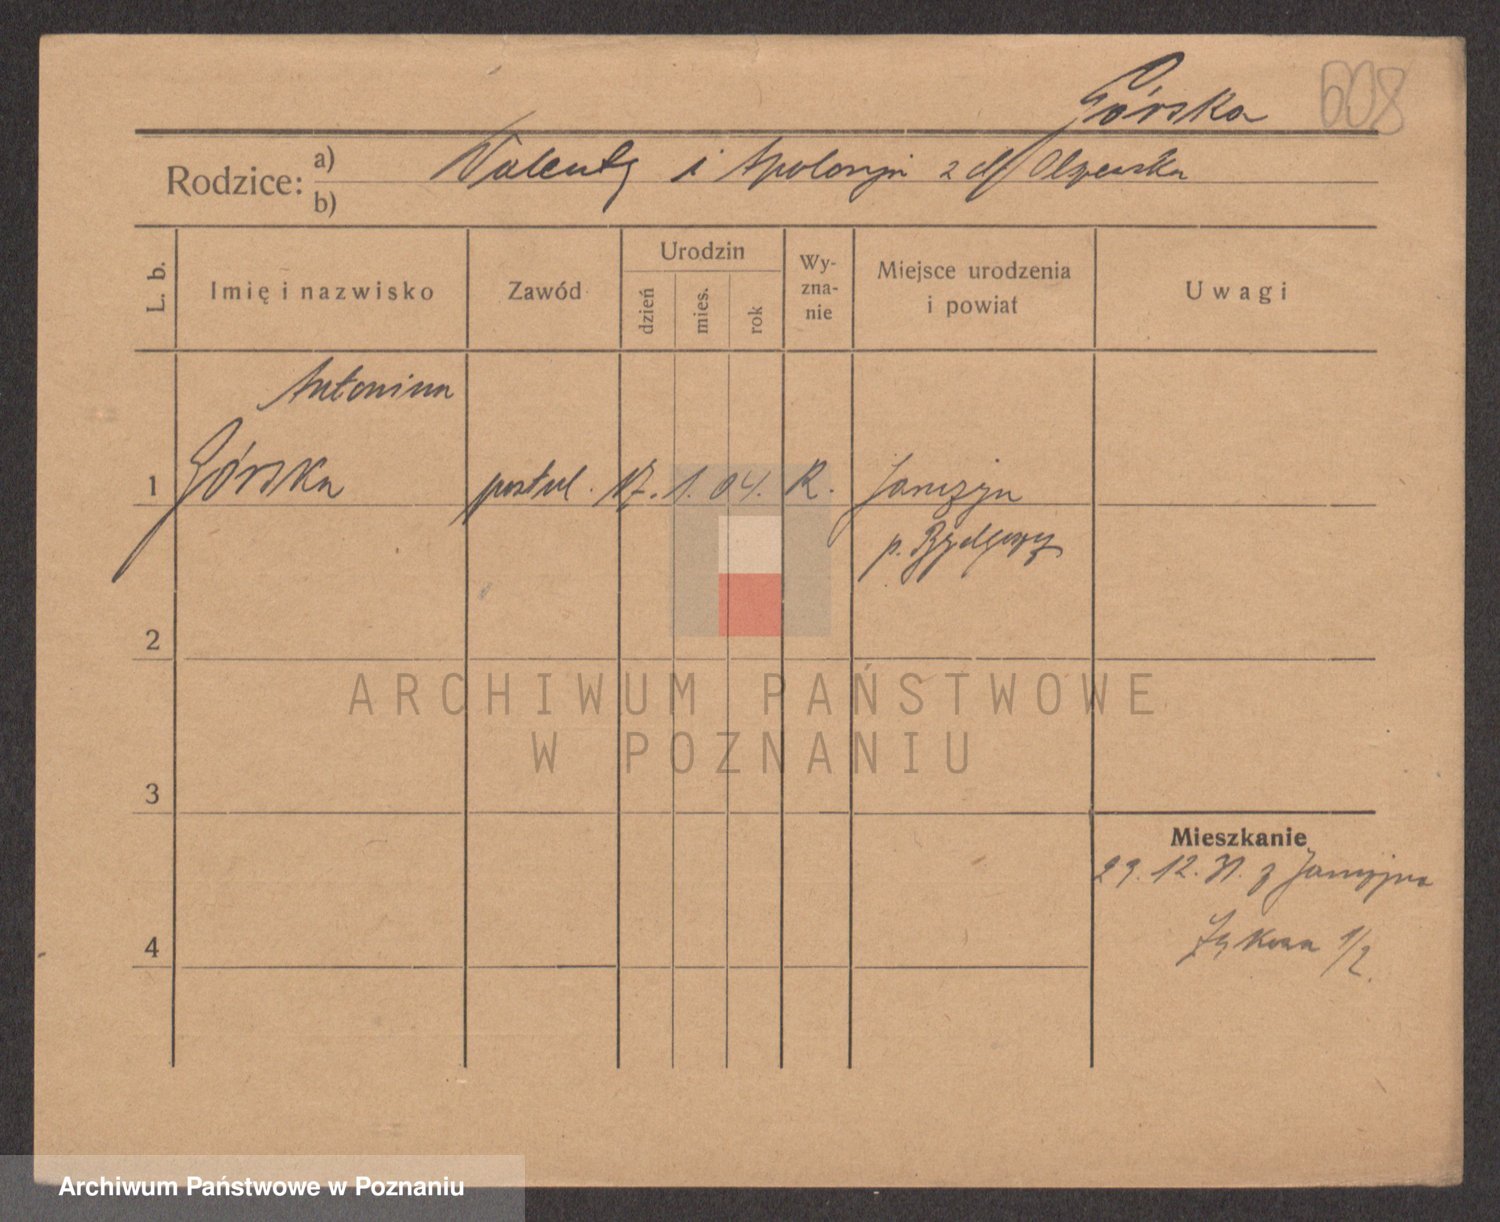 Górska 608
Rodzice: a) Walenty i Apolonja z d/ Olszewska
b)
L. b. Imię i nazwisko Zawód Urodzin dzień mies. rok Wy-
zna-
nie Miejsce urodzenia
i powiat Uwagi
Antonina
1 Górska postul. 17. 1. 04. R.
p. Bydgoszcz
2
ARCHIWUM PAŃSTWOWE
W POZNANIU
3
Mieszkanie
29. 12. 31. z
4 Łąkowa 1/2
Archiwum Państwowe w Poznaniu